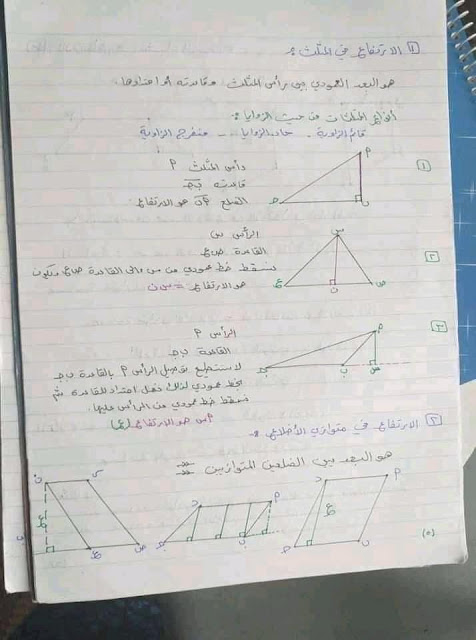 ١ الارتفاع في المثلث :
هو البعد العمودي بين رأس المثلث وقاعدته أو امتدادها.
أنواع المثلثات من حيث الزوايا :
قائم الزاوية . حاد الزوايا . منفرج الزاوية
١
رأس المثلث P
قاعدته ب ح
الضلع P ب هو الارتفاع
P
ح
ب
٢
الرأس س
القاعدة ص ع
نسقط خط عمودي من س إلى القاعدة ص ع ويكون
هو الارتفاع = س ن
س
ع
ن
ص
٣
الرأس P
القاعدة ب ح
لا نستطيع توصيل الرأس P بالقاعدة ب ح
بخط عمودي لذلك نعمل امتداد للقاعدة ثم
نسقط خط عمودي من الرأس عليها.
P س هو الارتفاع (ع)
P
ح
ب
س
٢ الارتفاع في متوازي الأضلاع :
هو البعد بين الضلعين المتوازيين
ن
ع
ع
ص
ح
ب
P
ع
ح
ب
(٥)